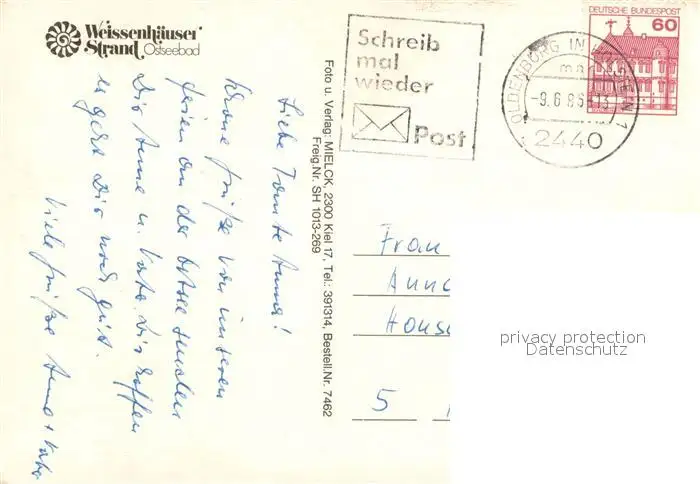 Weissenhäuser
Strand Ostseebad
Liebe Tante Anna!
Schöne Grüße von unseren
Ferien an der Ostsee senden
Dir Anne u. Kata. Wir hoffen
es geht Dir noch gut.
Viele Grüße Anne + Kata
Foto u. Verlag: MIELCK, 2300 Kiel 17, Tel.: 391314, Bestell.Nr. 7462
Freig.Nr. SH 1013-269
Schreib
mal
wieder
Post
OLDENBURG IN
-9.6.86-13
2440
DEUTSCHE BUNDESPOST
60
Frau
Anna
5
privacy protection
Datenschutz